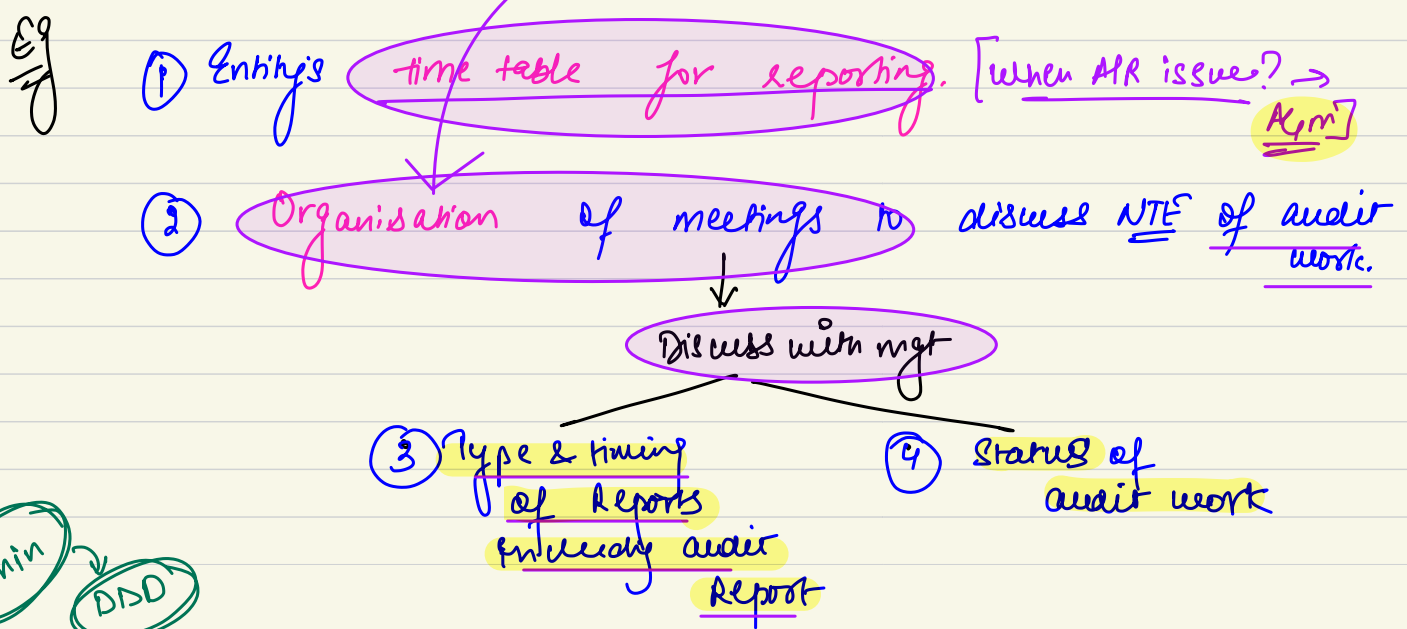 Eg
① Entity's time table for reporting. [When A/R issue? →
AGM]
② Organisation of meetings to discuss NTE of audit
work.
Discuss with mgt
③ Type & timing
of Reports
including audit
Report
④ Status of
audit work
DDD